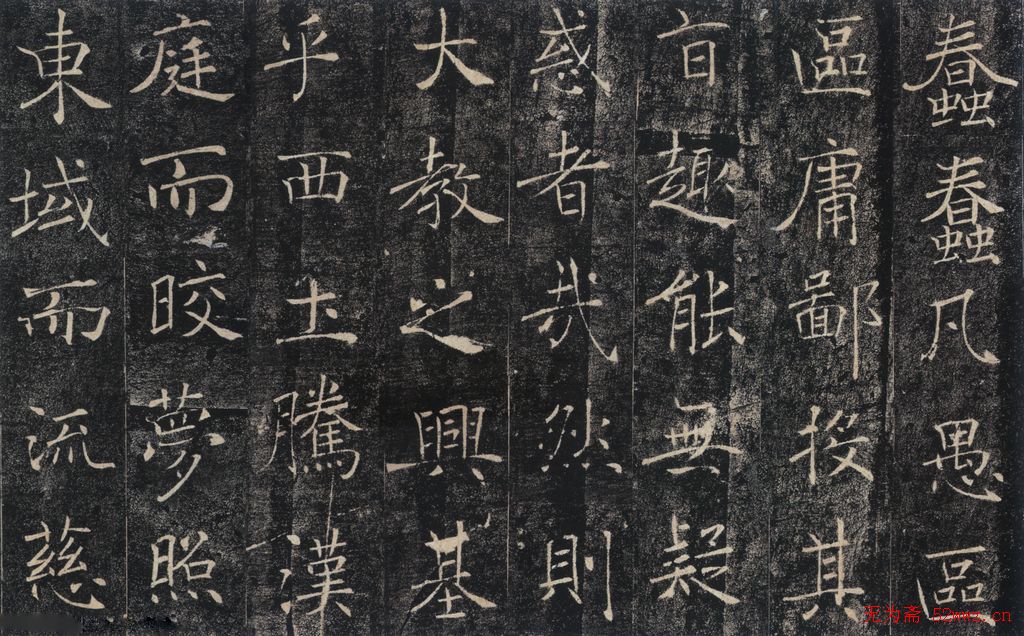 蠢蠢凡愚區
區庸鄙投其
盲趣能無疑
惑者哉然則
大教之興基
乎西土騰漢
庭而皎夢照
東域而流慈
无为斋 52wwz.cn